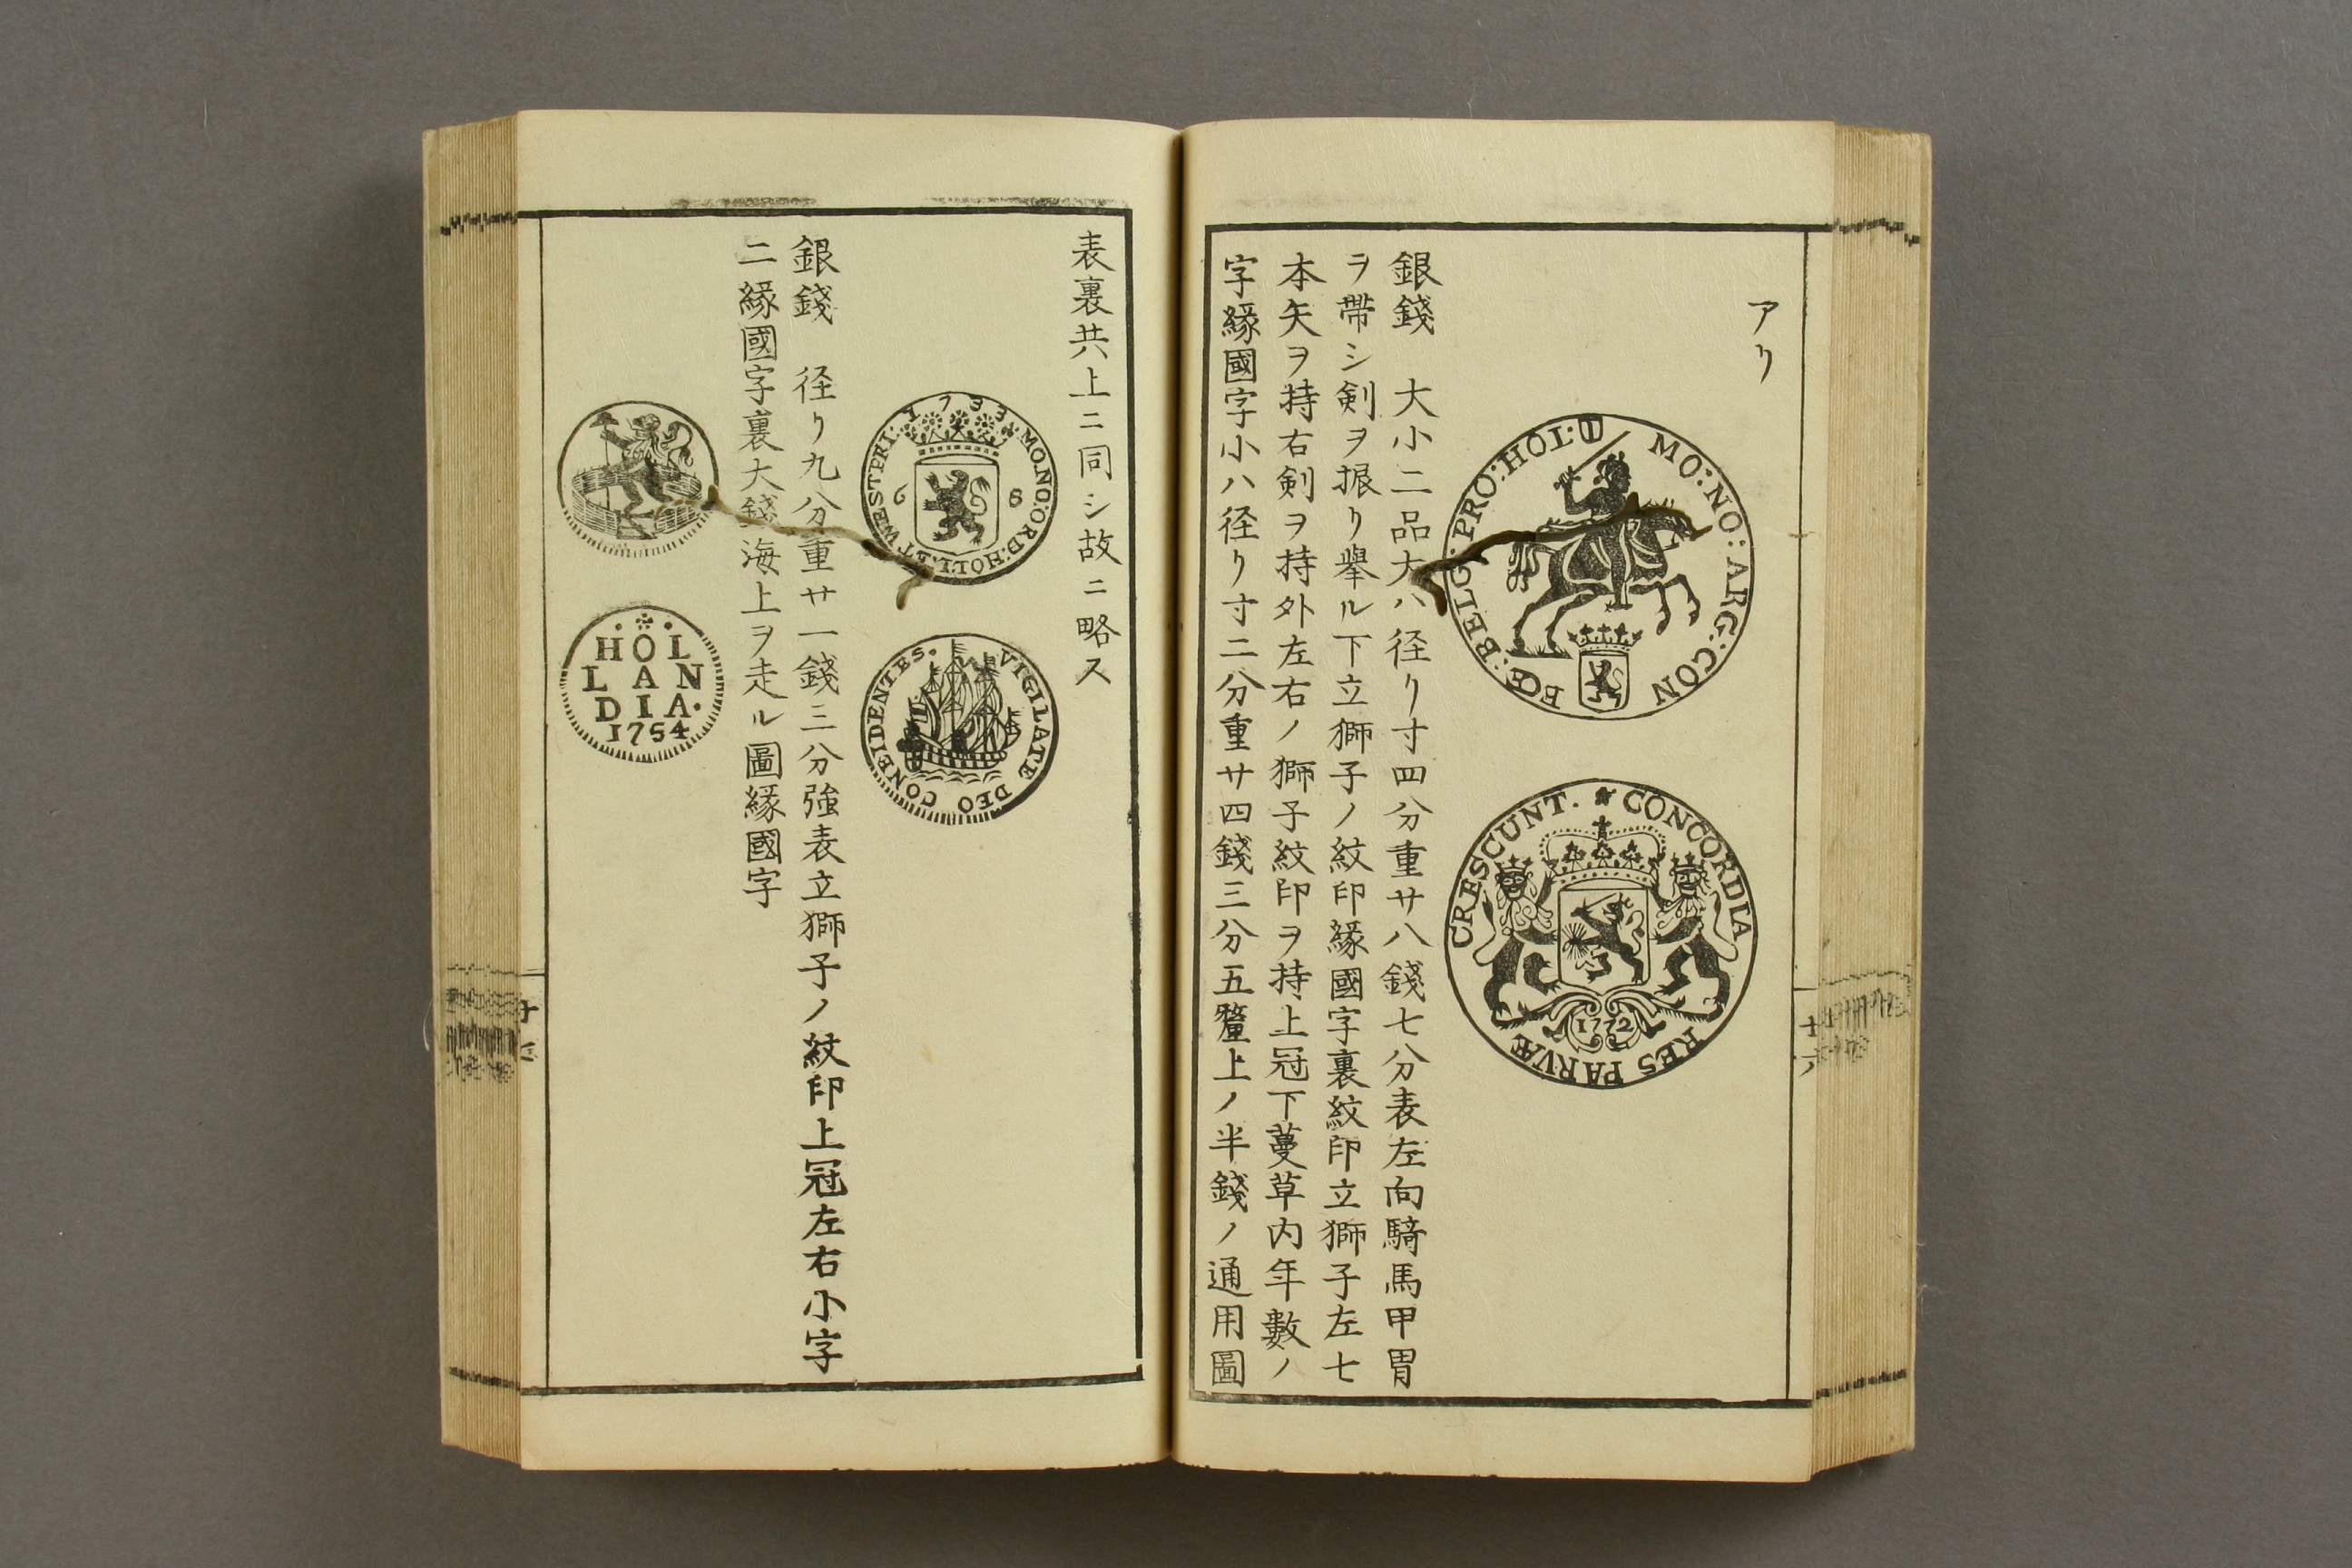 アリ
MO:NO:ARG:CON FŒ:BELG:PRO:HOL:
CONCORDIA RES PARVÆ CRESCUNT.
1772
銀錢 大小二品大ハ径リ寸四分重サ八錢七分表左向騎馬甲冑
ヲ帶シ剣ヲ振リ舉ル下立獅子ノ紋印縁國字裏紋印立獅子左七
本矢ヲ持右剣ヲ持外左右ノ獅子紋印ヲ持上冠下蔓草内年數ノ
字縁國字小ハ径リ寸二分重サ四錢三分五釐上ノ半錢ノ通用圖
十六
表裏共上ニ同シ故ニ略ス
1733 MO:NO:ORD:HOLL:ET.WESTFRI.
6 S
VIGILATE DEO CONFIDENTES.
銀錢 径リ九分重サ一錢三分強表立獅子ノ紋印上冠左右小字
二縁國字裏大錢海上ヲ走ル圖縁國字
HOL
LAN
DIA.
1754